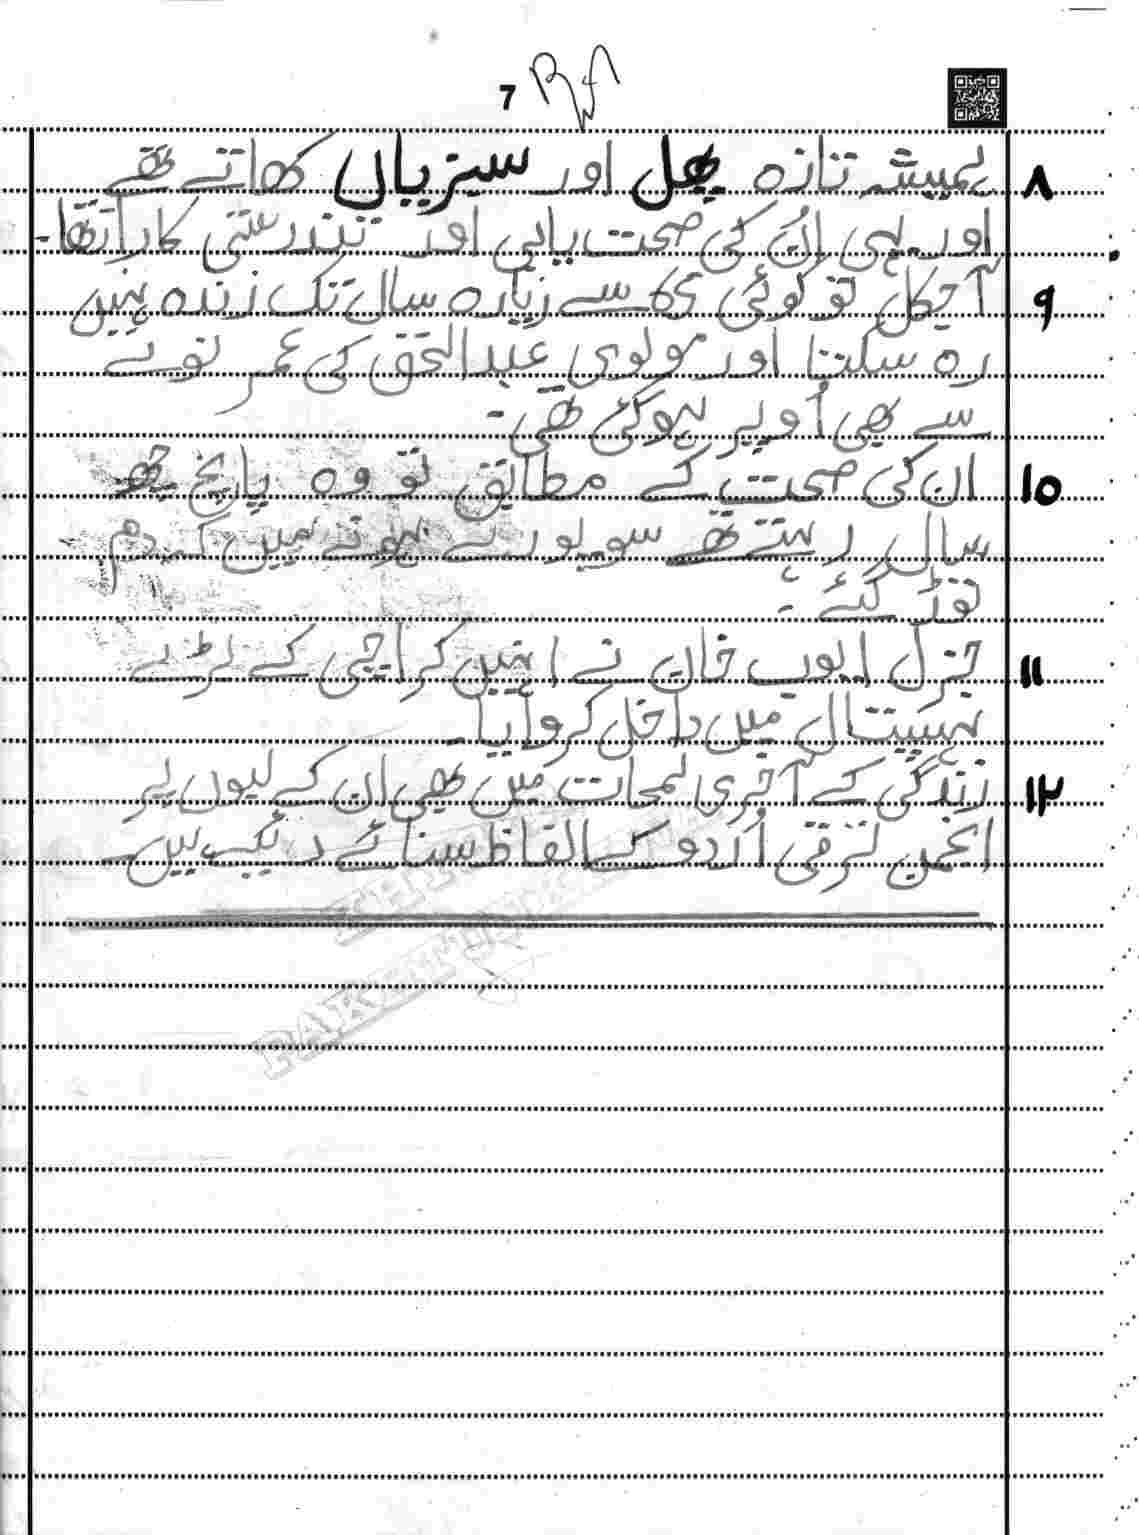 7
۸ ہمیشہ تازہ پھل اور سبزیاں کھاتے تھے
اور یہی اُن کی صحت یابی اور تندرستی کا راز تھا۔
۹ آجکل تو کوئی سے زیادہ سال تک زندہ نہیں
رہ سکتا اور مولوی عبدالحق کی عمر نوے
سے بھی اُوپر ہوگئی تھی۔
۱۰ ان کی صحت کے مطابق تو وہ پانچ چھ
سال رہتے تھے سو پورے ہونے میں کہ دم
توڑ گئے۔
۱۱ جنرل ایوب خان نے انہیں کراچی کے بڑے
ہسپتال میں داخل کروایا۔
۱۲ زندگی کے آخری لمحات میں بھی ان کے لبوں پر
انجمن ترقی اُردو کے الفاظ سنائے دیئے ہیں۔
PAKHTUNKHWA